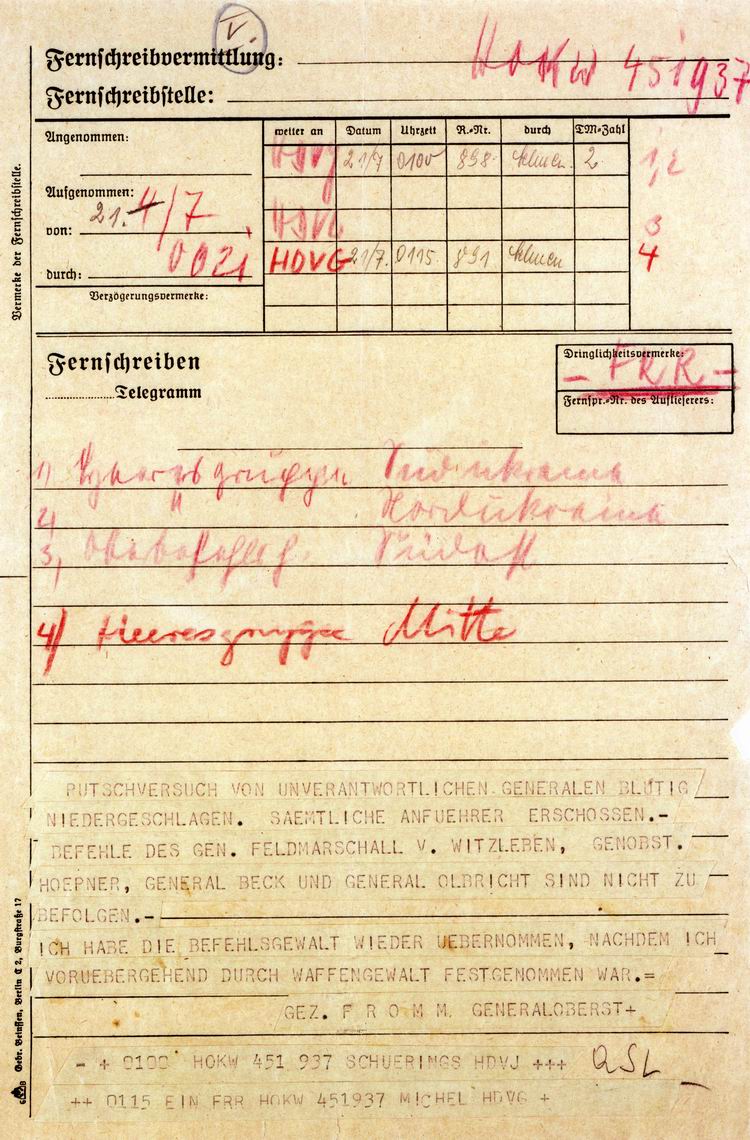 V.
Fernschreibvermittlung: HOKW 451937
Fernschreibstelle:
Angenommen:
Aufgenommen:
21. 4/7
von:
0021
durch:
Verzögerungsvermerke:
weiter an Datum Uhrzeit R.-Nr. durch TM-Zahl
21/7 0100 898 2 1, 2
3
HDVG 21/7. 0115. 891 4
Vermerke der Fernschreibstelle.
Fernschreiben
Telegramm
Dringlichkeitsvermerke:
- FRR -
Fernspr.-Nr. des Auflieferers:
1) Heeresgruppe Südukraine
2) " Nordukraine
3, Oberbefehlsh. Südost
4) Heeresgruppe Mitte
PUTSCHVERSUCH VON UNVERANTWORTLICHEN GENERALEN BLUTIG
NIEDERGESCHLAGEN. SAEMTLICHE ANFUEHRER ERSCHOSSEN.-
BEFEHLE DES GEN. FELDMARSCHALL V. WITZLEBEN, GENOBST.
HOEPNER, GENERAL BECK UND GENERAL OLBRICHT SIND NICHT ZU
BEFOLGEN.-
ICH HABE DIE BEFEHLSGEWALT WIEDER UEBERNOMMEN, NACHDEM ICH
VORUEBERGEHEND DURCH WAFFENGEWALT FESTGENOMMEN WAR.=
GEZ. F R O M M GENERALOBERST+
- + 0100 HOKW 451 937 SCHUERINGS HDVJ +++ QSL
++ 0115 EIN FRR HOKW 451937 MICHEL HDVG +
Gebr. Beinssen, Berlin C 2, Burgstraße 17